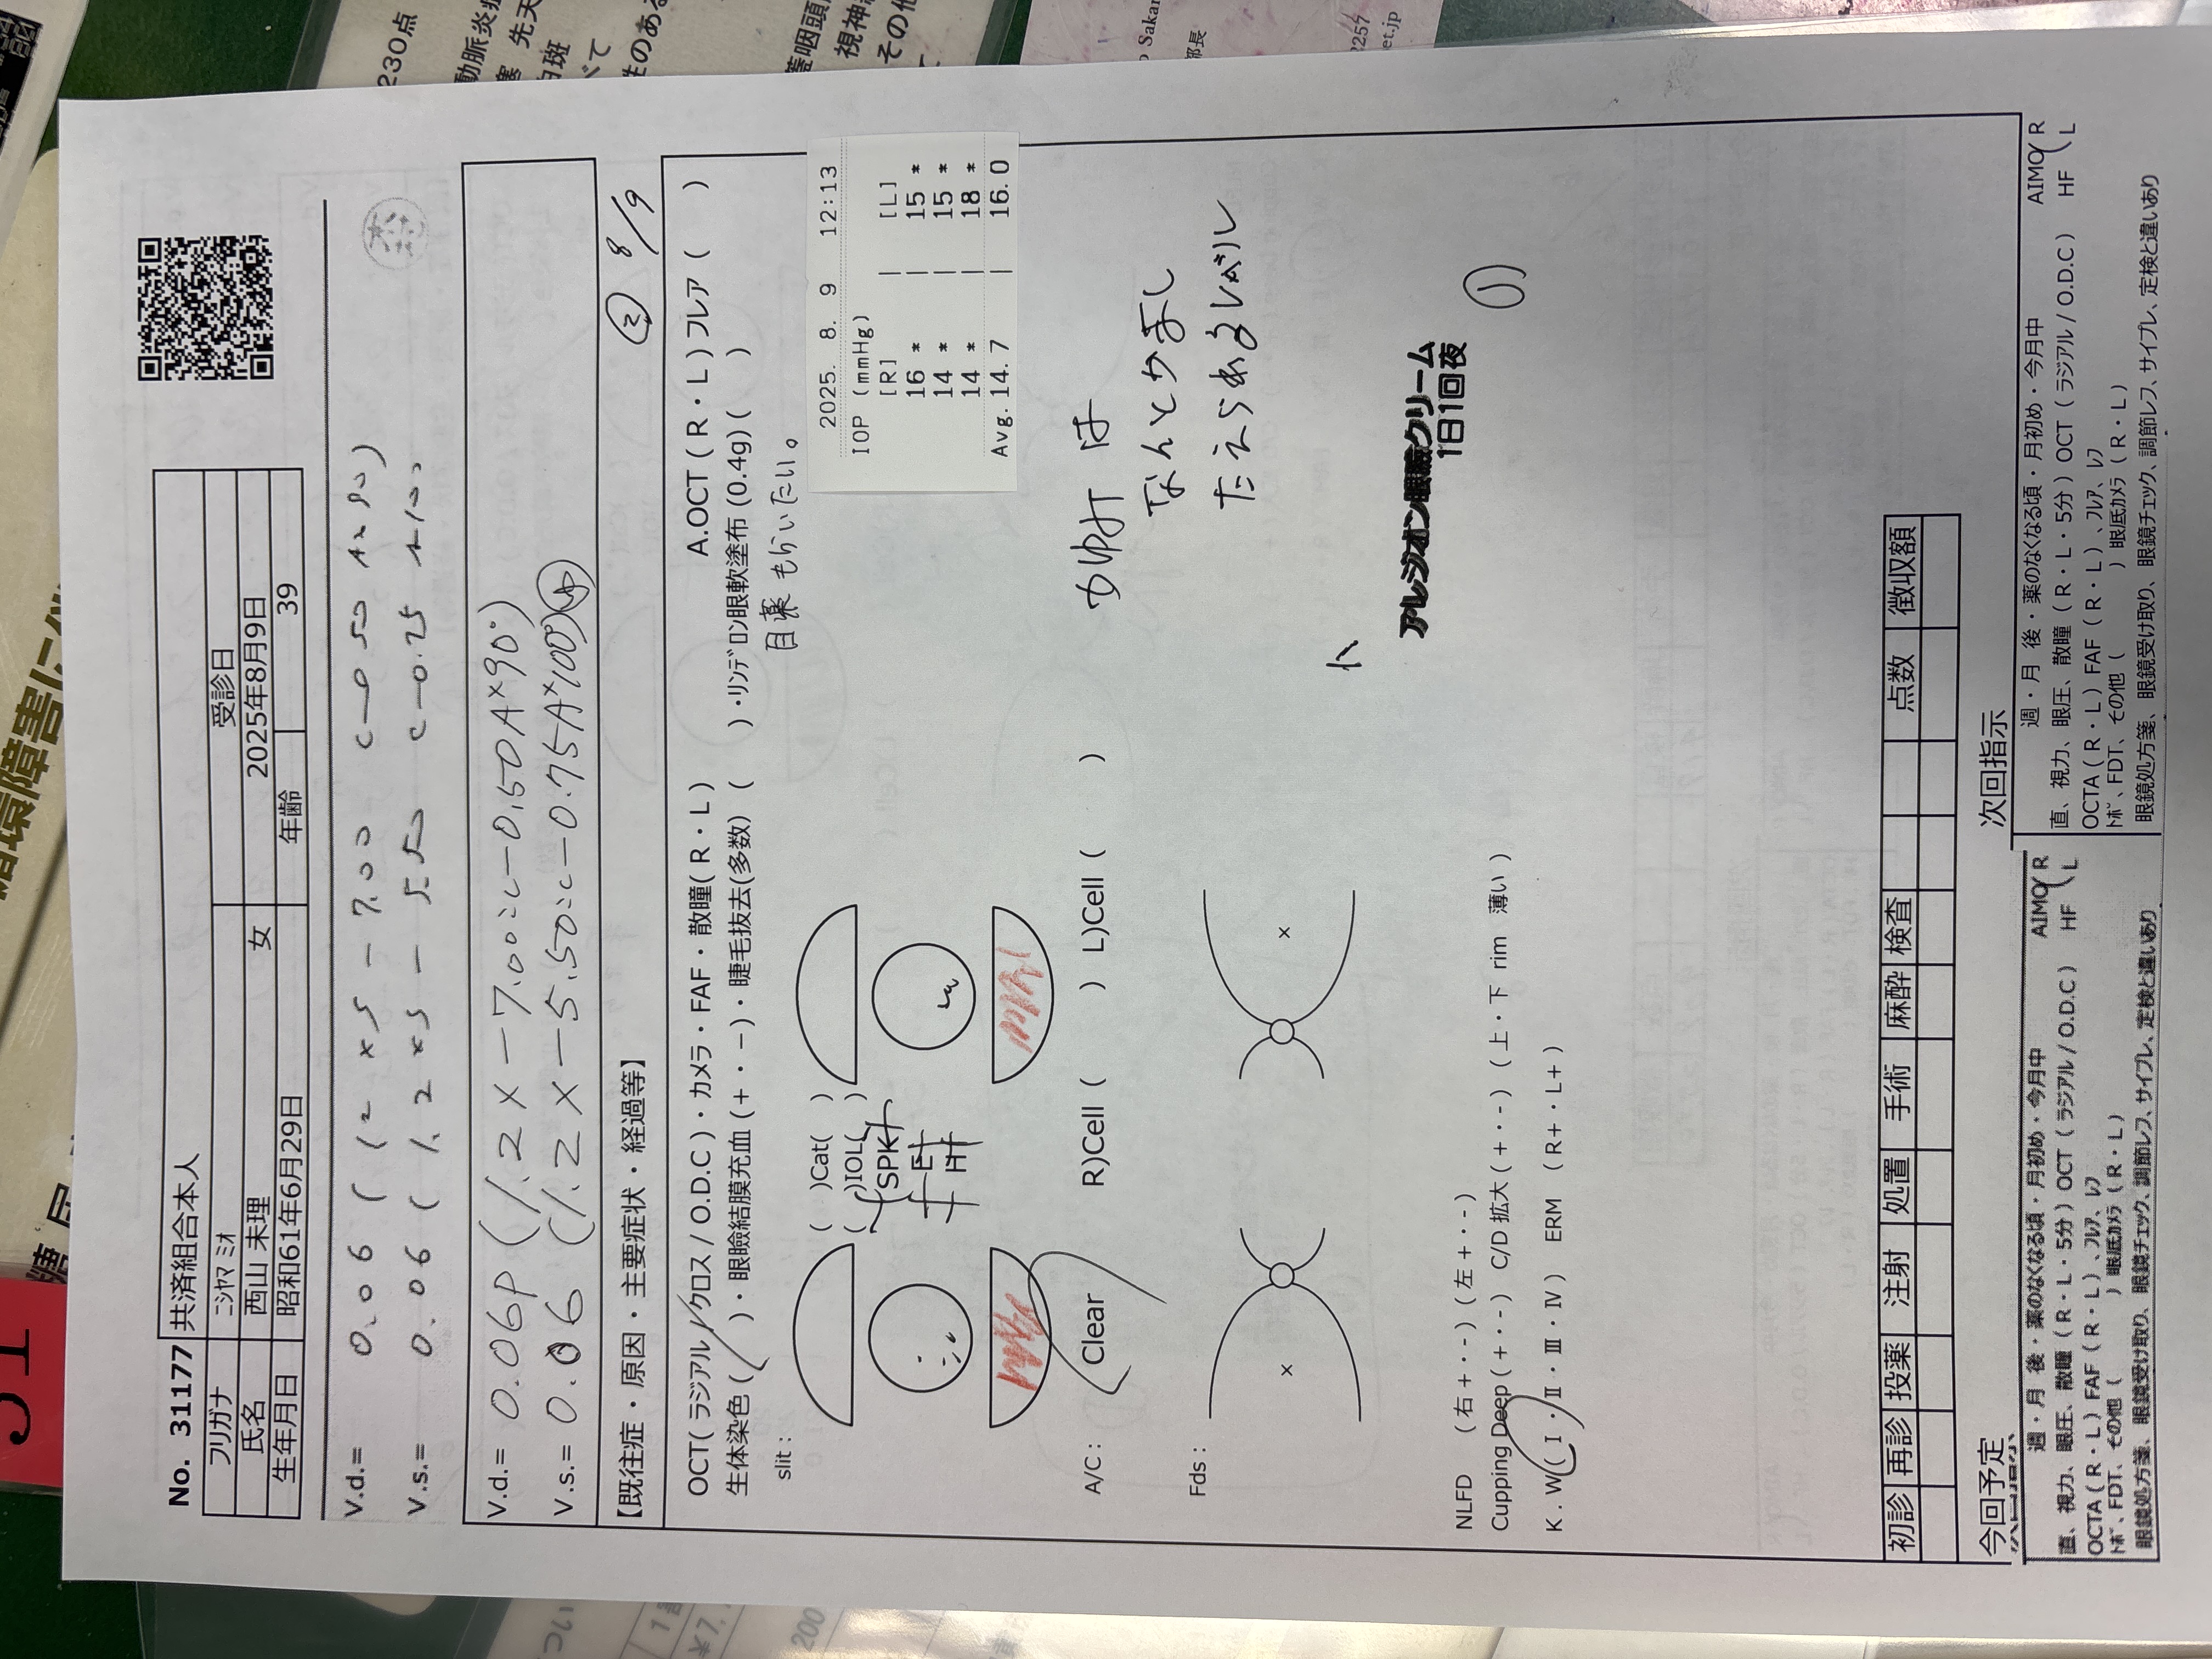 51
糖尿
循環障害に伴
No. 31177 共済組合本人
フリガナ ニシヤマ ミオ 受診日
氏名 西山 未理 女 2025年8月9日
生年月日 昭和61年6月29日 年齢 39
V.d.= 0.06 ( 1.2 ×S - 7.00 C-0.50 A×90)
V.s.= 0.06 ( 1.2 ×S - 5.50 C-0.75 A100
V.d.= 0.06p (1.2 × -7.00:c-0.50A×90°)
V.s.= 0.06 (1.2 × -5.50:c-0.75A×100°)
【既往症・原因・主要症状・経過等】 ② 8/9
OCT( ラジアル / クロス / O.D.C )・カメラ・FAF・散瞳( R・L ) A.OCT ( R・L ) フレア ( )
生体染色 ( )・眼瞼結膜充血 (+・−)・睫毛抜去(多数) ( )・リンデロン眼軟塗布 (0.4g) ( )
slit : 目薬 もらいたい。
( )Cat( )
( )IOL( )
SPK
E
H
2025. 8. 9 12:13
IOP (mmHg)
[R] | [L]
16 * | 15 *
14 * | 15 *
14 * | 18 *
Avg. 14.7 | 16.0
A/C : Clear R)Cell ( ) L)Cell ( )
かゆみ は
なんとかまし
たえられるレベル
Fds :
アレジオン眼瞼クリーム
1日1回夜
①
NLFD (右 +・-) (左 +・-)
Cupping Deep ( +・- ) C/D 拡大 ( +・- ) ( 上・下 rim 薄い )
K . W ( Ⅰ・Ⅱ・Ⅲ・Ⅳ ) ERM ( R+・L+ )
初診 再診 投薬 注射 処置 手術 麻酔 検査 点数 徴収額
今回予定 次回指示
週・月 後・薬のなくなる頃・月初め・今月中 AIMO R
直、視力、眼圧、散瞳 ( R・L・5分 ) OCT ( ラジアル / O.D.C ) HF L
OCTA ( R・L ) FAF ( R・L ) 、フレア、レフ
トポ、FDT、その他 ( ) 眼底カメラ ( R・L )
眼鏡処方箋、眼鏡受け取り、眼鏡チェック、調節レフ、サイプレ、定検と違いあり
週・月 後・薬のなくなる頃・月初め・今月中 AIMO R
直、視力、眼圧、散瞳 ( R・L・5分 ) OCT ( ラジアル / O.D.C ) HF L
OCTA ( R・L ) FAF ( R・L ) 、フレア、レフ
トポ、FDT、その他 ( ) 眼底カメラ ( R・L )
眼鏡処方箋、眼鏡受け取り、眼鏡チェック、調節レフ、サイプレ、定検と違いあり
230点
動脈炎症
塞 先天
白斑
べて
性のある
蓋咽頭
視神経
その他
Sakan
部長
2257
et.jp
つい
200